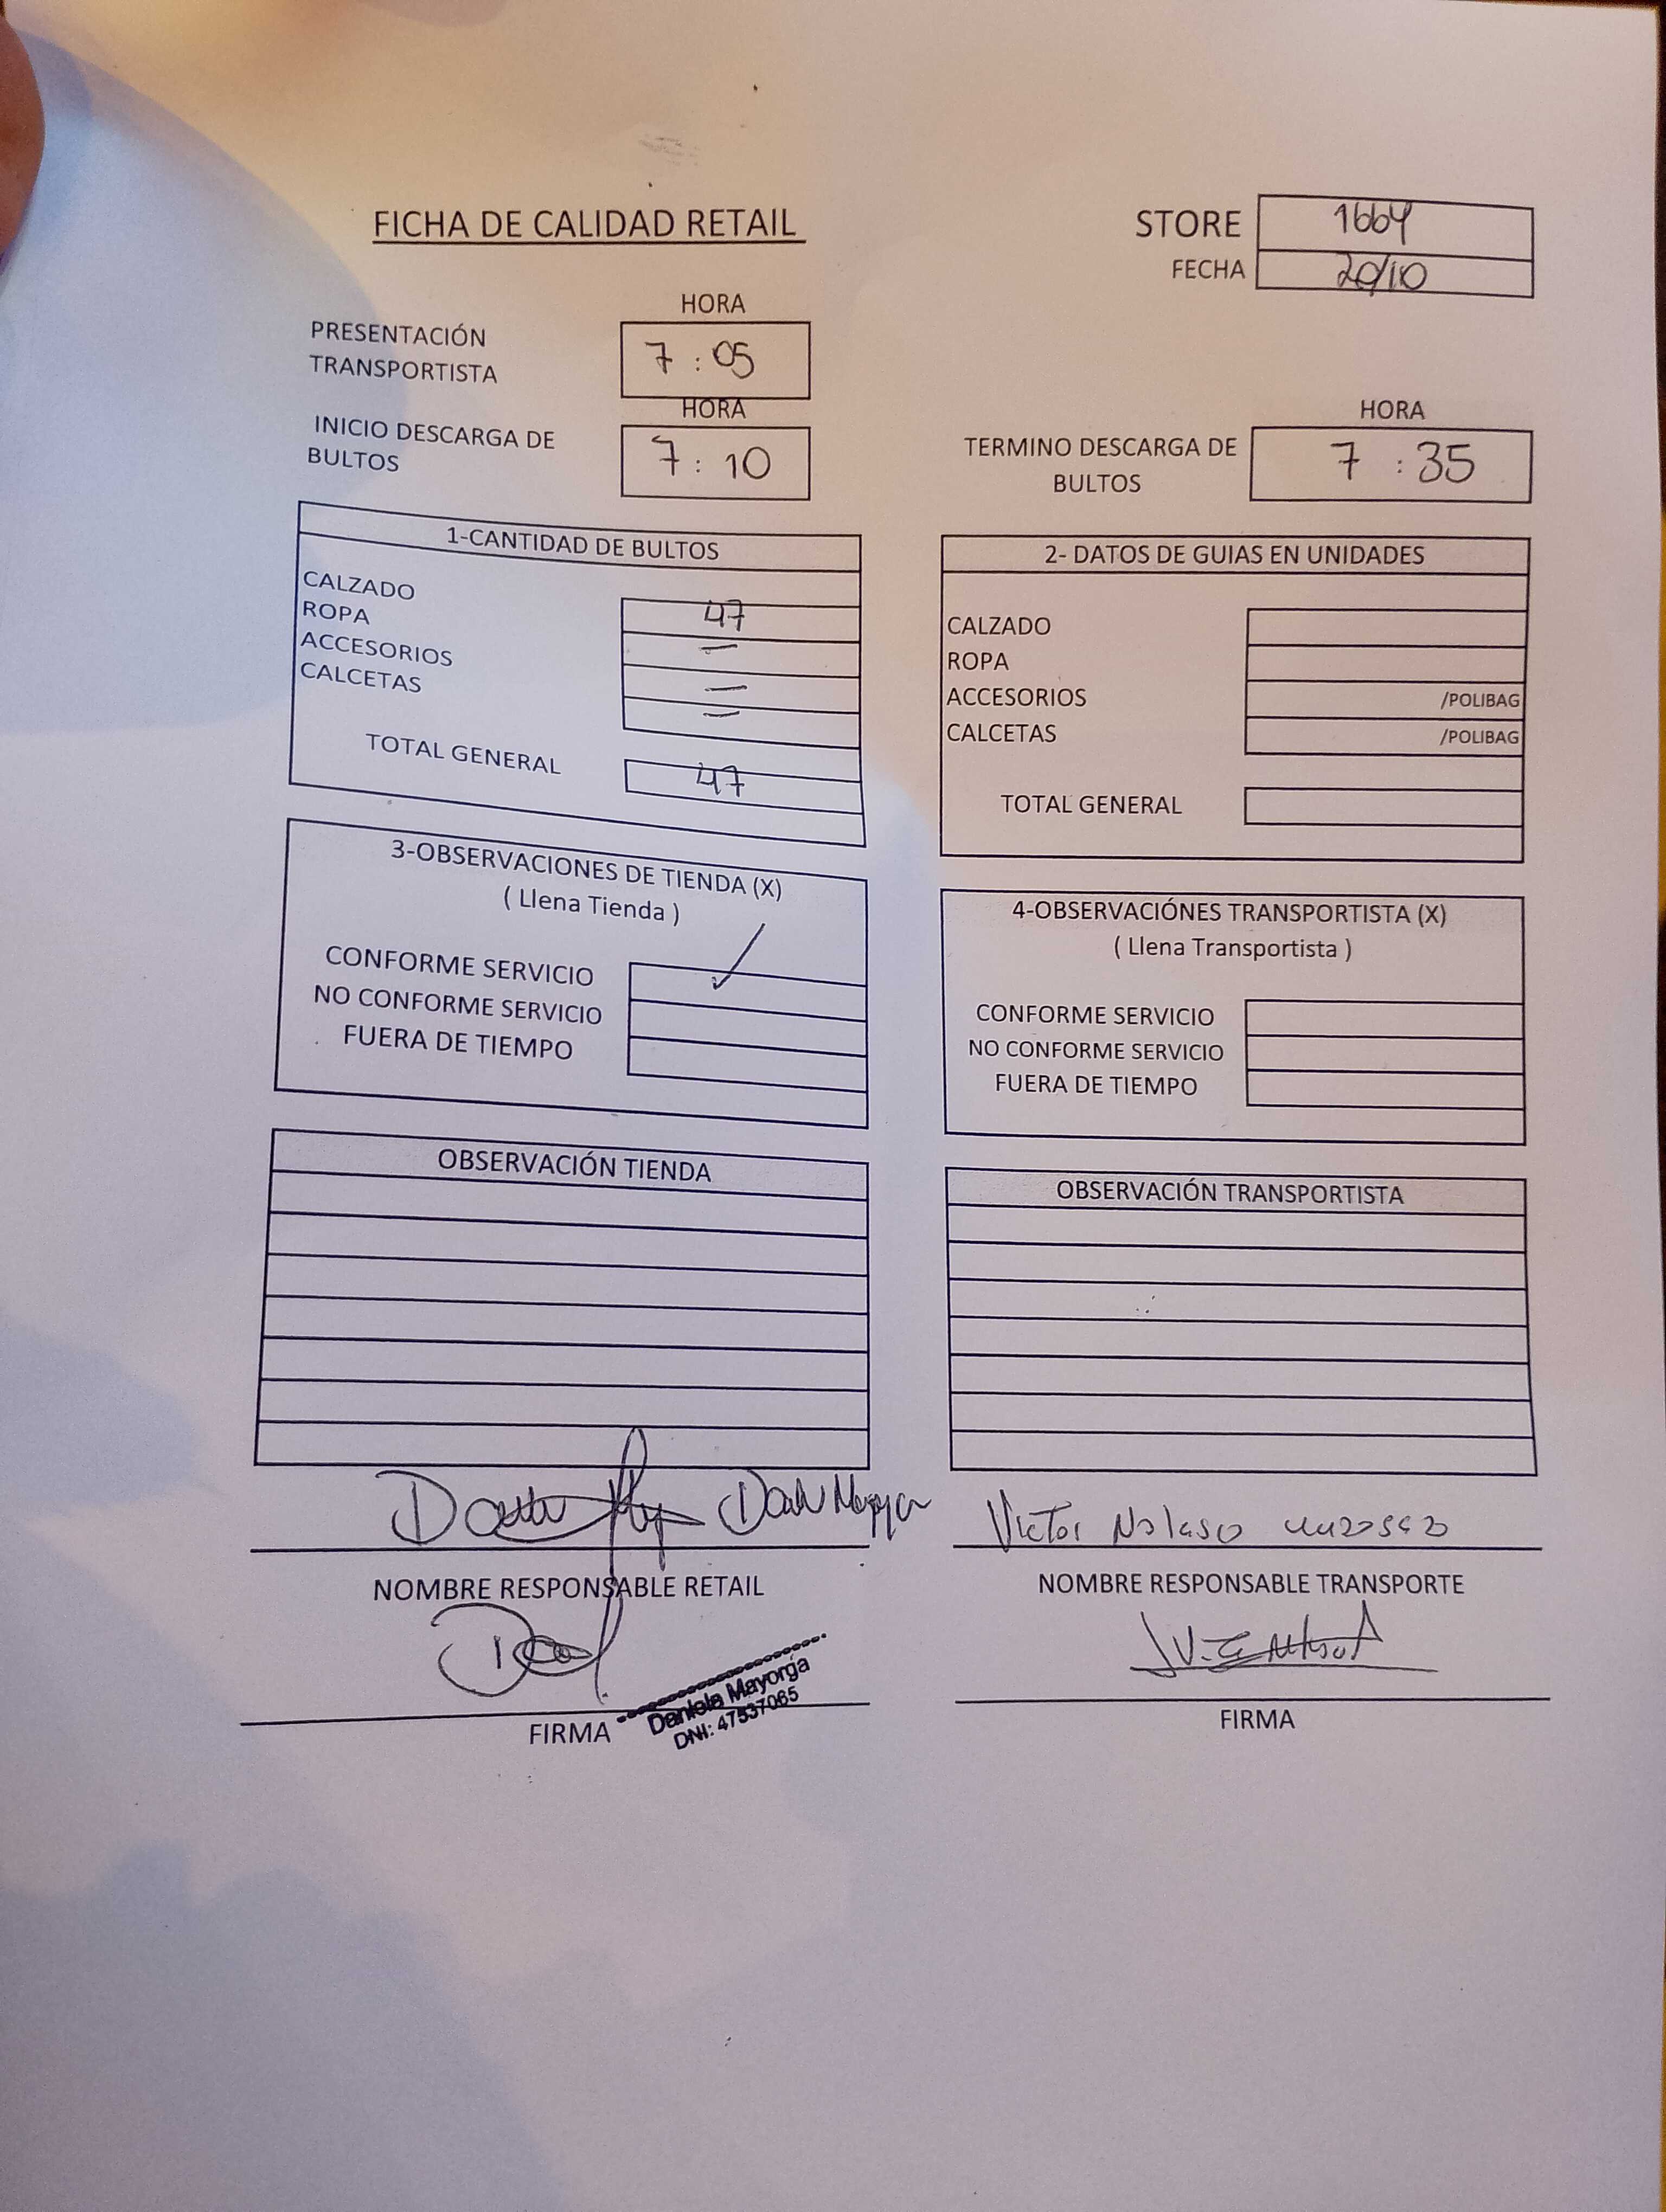 FICHA DE CALIDAD RETAIL
STORE 1664
FECHA 20/10
HORA
PRESENTACIÓN TRANSPORTISTA 7:05
HORA
INICIO DESCARGA DE BULTOS 7:10
HORA
TERMINO DESCARGA DE BULTOS 7:35
1-CANTIDAD DE BULTOS
CALZADO 47
ROPA —
ACCESORIOS —
CALCETAS —
TOTAL GENERAL 47
2- DATOS DE GUIAS EN UNIDADES
CALZADO
ROPA
ACCESORIOS /POLIBAG
CALCETAS /POLIBAG
TOTAL GENERAL
3-OBSERVACIONES DE TIENDA (X)
( Llena Tienda )
CONFORME SERVICIO ✓
NO CONFORME SERVICIO
FUERA DE TIEMPO
4-OBSERVACIÓNES TRANSPORTISTA (X)
( Llena Transportista )
CONFORME SERVICIO
NO CONFORME SERVICIO
FUERA DE TIEMPO
OBSERVACIÓN TIENDA
OBSERVACIÓN TRANSPORTISTA
NOMBRE RESPONSABLE RETAIL
Victor Nolasco
NOMBRE RESPONSABLE TRANSPORTE
Daniela Mayorga
DNI: 47537065
FIRMA
FIRMA